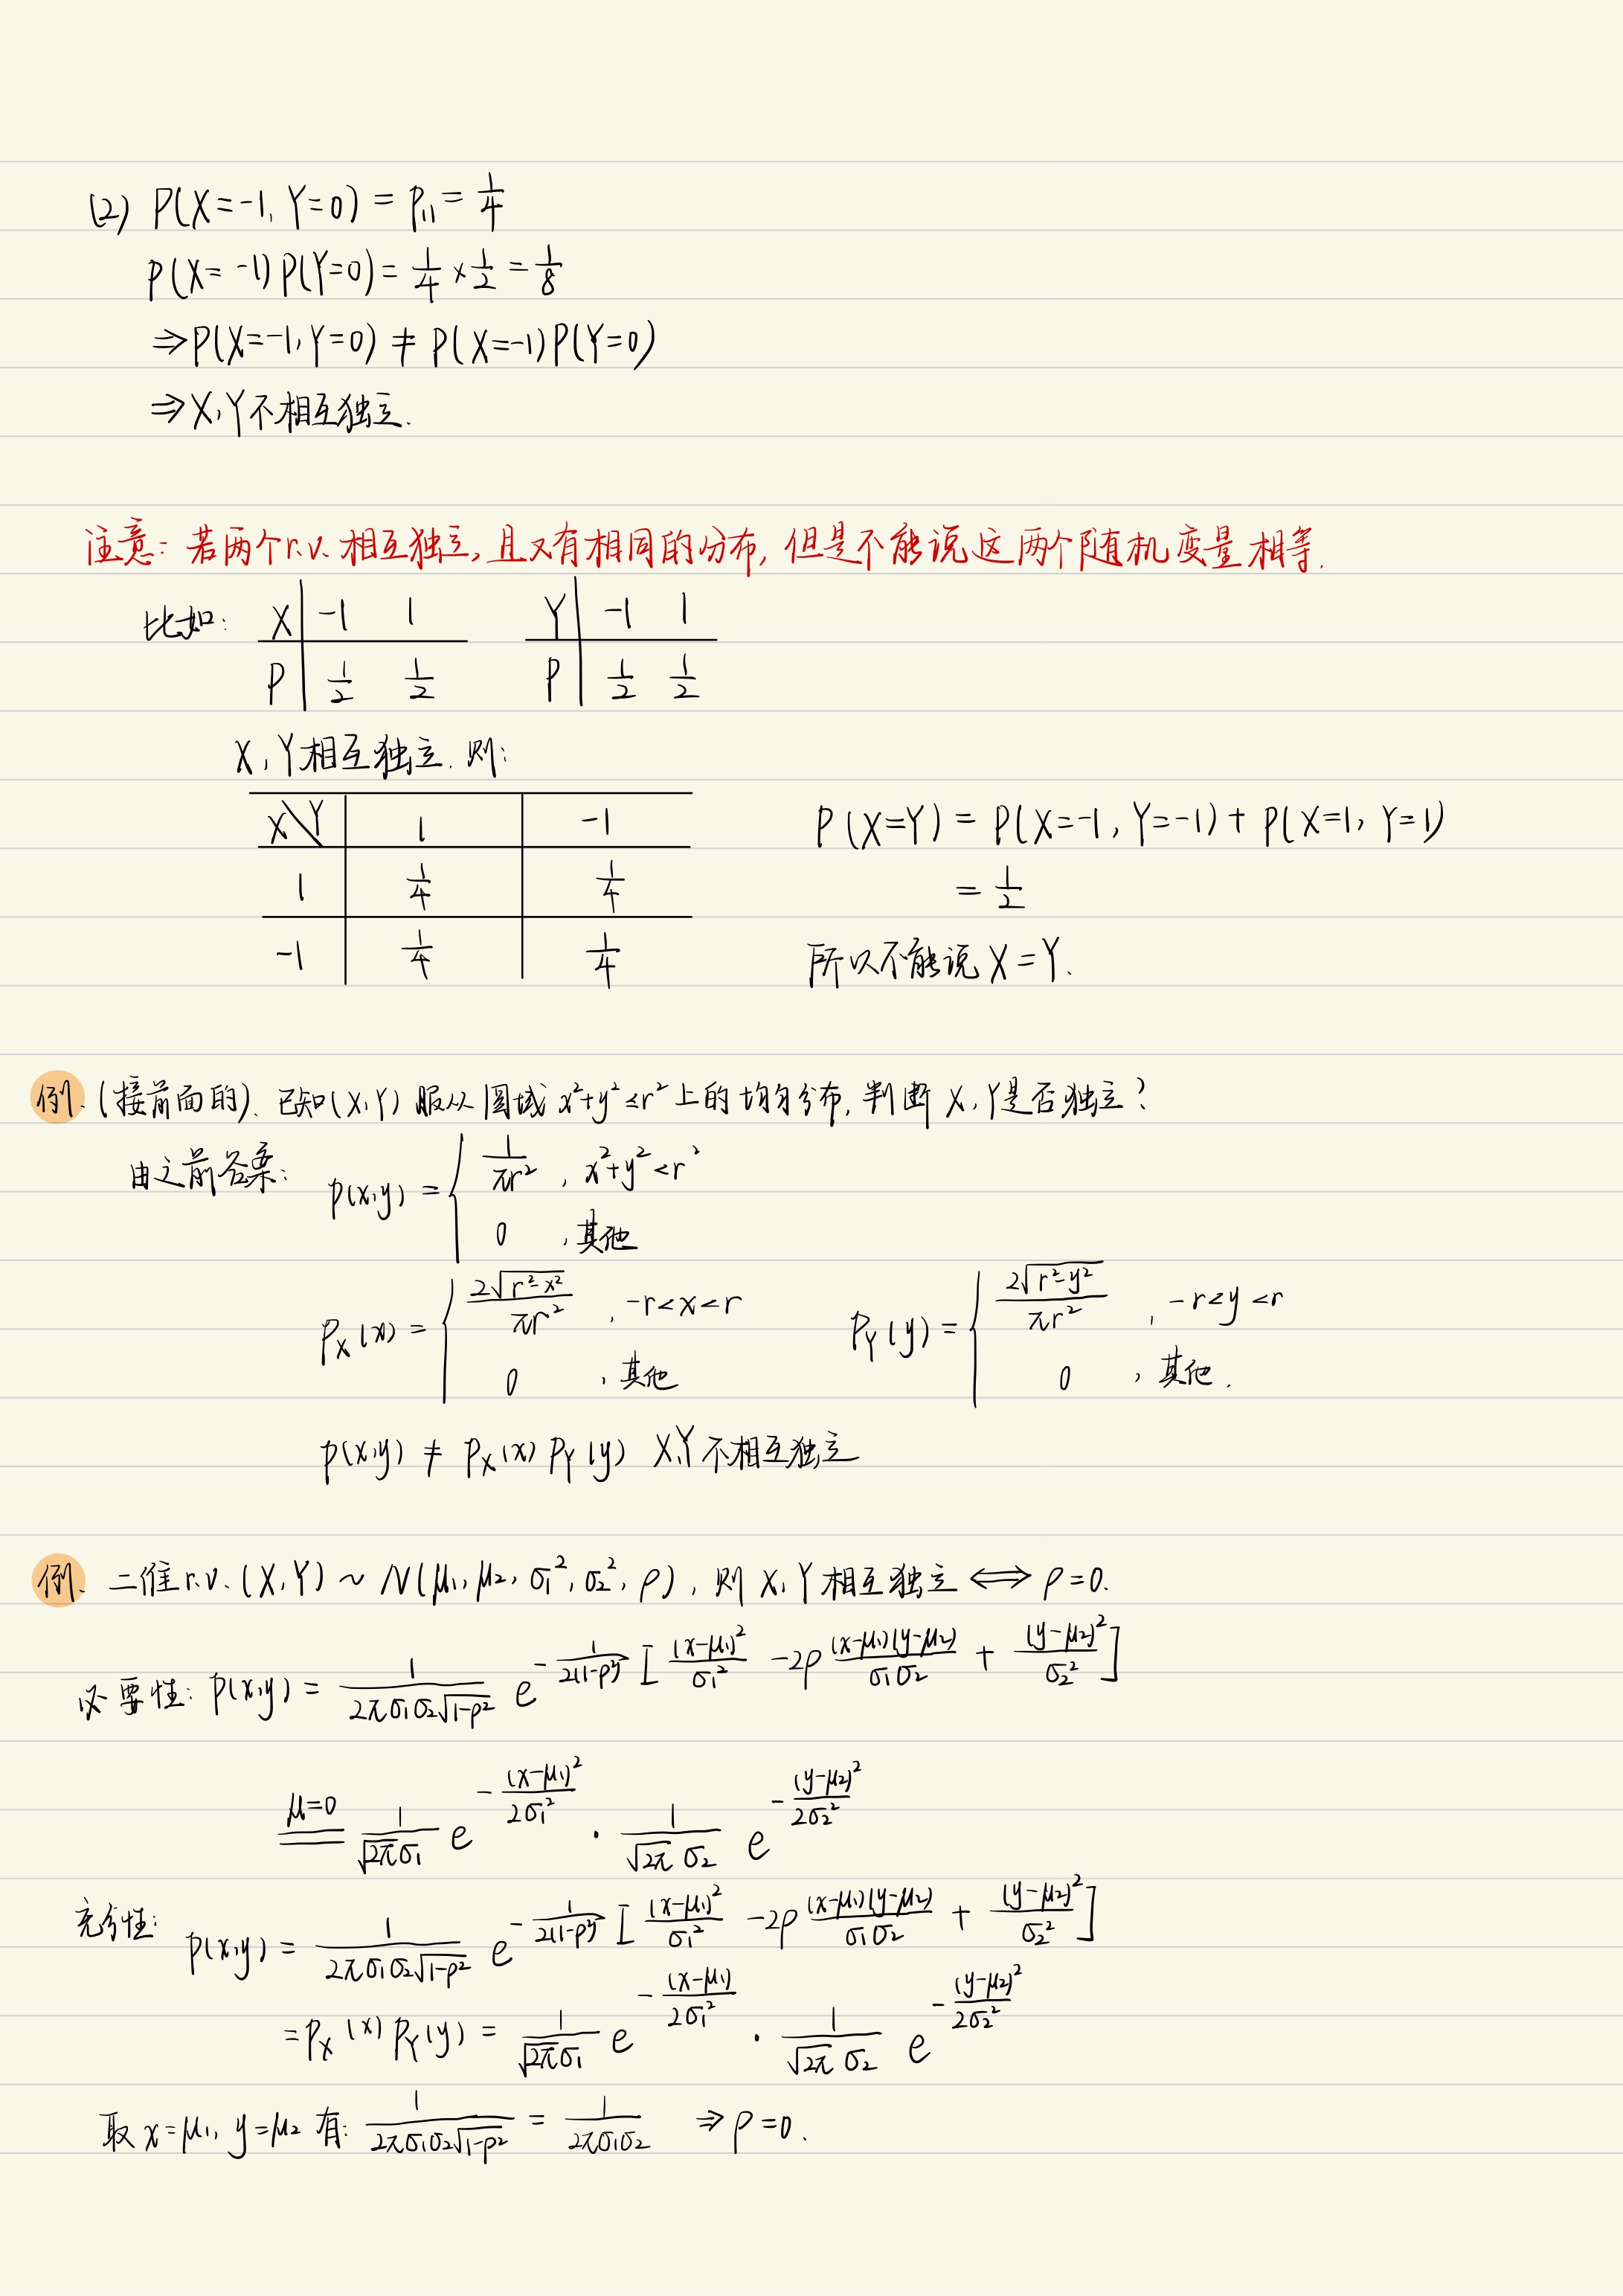 (2) P(X=-1, Y=0) = P₁₁ = 1/4
P(X=-1)P(Y=0) = 1/4 × 1/2 = 1/8
⇒ P(X=-1, Y=0) ≠ P(X=-1)P(Y=0)
⇒ X, Y不相互独立.
注意: 若两个r.v. 相互独立, 且又有相同的分布, 但是不能说这两个随机变量相等.
比如: X | -1 1    Y | -1 1
P | 1/2 1/2    P | 1/2 1/2
X, Y相互独立. 则:
X\Y | 1 | -1    P(X=Y) = P(X=-1, Y=-1) + P(X=1, Y=1)
1 | 1/4 | 1/4    = 1/2
-1 | 1/4 | 1/4    所以不能说 X=Y.
例. (接前面的). 已知(X,Y) 服从圆域 x²+y²≤r² 上的均匀分布, 判断 X, Y是否独立?
由之前答案: p(x,y) = { 1/(πr²) , x²+y²<r²
0 , 其他
p_X(x) = { 2√(r²-x²)/(πr²) , -r<x<r    p_Y(y) = { 2√(r²-y²)/(πr²) , -r<y<r
0 , 其他    0 , 其他.
p(x,y) ≠ p_X(x) p_Y(y) X,Y不相互独立
例. 二维 r.v. (X,Y) ~ N(μ₁, μ₂, σ₁², σ₂², ρ), 则 X, Y 相互独立 ⟺ ρ=0.
必要性: p(x,y) = 1/(2πσ₁σ₂√(1-ρ²)) e^{-1/(2(1-ρ²)) [(x-μ₁)²/σ₁² - 2ρ (x-μ₁)(y-μ₂)/(σ₁σ₂) + (y-μ₂)²/σ₂²]}
μ=0 == 1/(√(2π)σ₁) e^{-(x-μ₁)²/(2σ₁²)} · 1/(√(2π)σ₂) e^{-(y-μ₂)²/(2σ₂²)}
充分性: p(x,y) = 1/(2πσ₁σ₂√(1-ρ²)) e^{-1/(2(1-ρ²)) [(x-μ₁)²/σ₁² - 2ρ (x-μ₁)(y-μ₂)/(σ₁σ₂) + (y-μ₂)²/σ₂²]}
= p_X(x) p_Y(y) = 1/(√(2π)σ₁) e^{-(x-μ₁)/(2σ₁²)} · 1/(√(2π)σ₂) e^{-(y-μ₂)²/(2σ₂²)}
取 x=μ₁, y=μ₂ 有: 1/(2πσ₁σ₂√(1-ρ²)) = 1/(2πσ₁σ₂) ⇒ ρ=0.